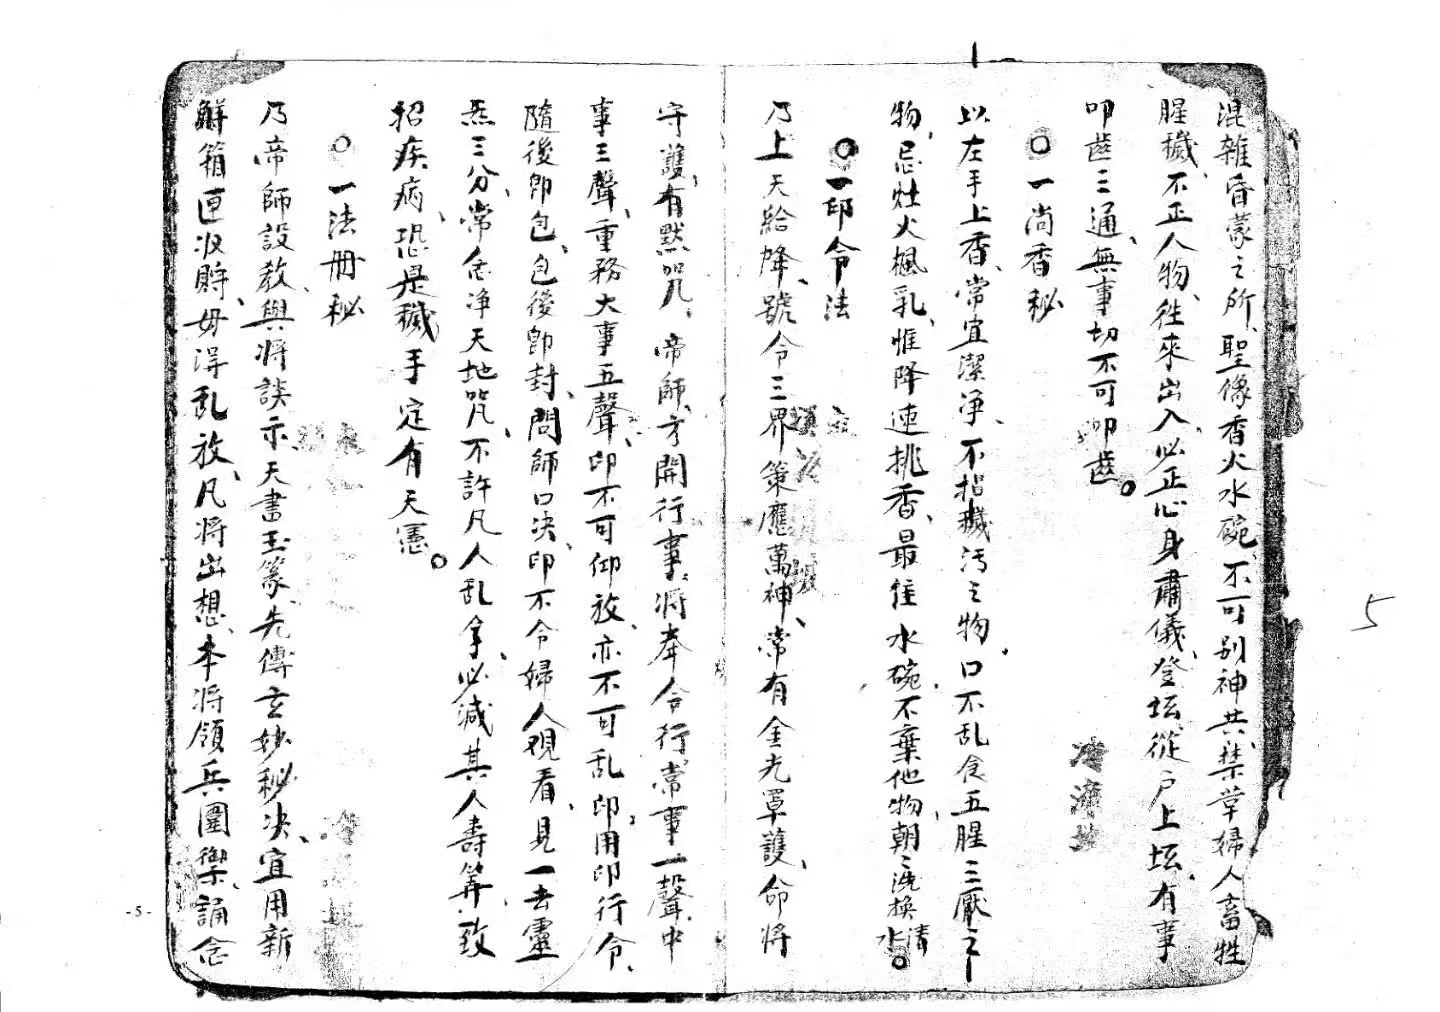 混雜昏蒙之所、聖像香火水碗、不可别神共、禁草婦人畜牲
腥穢、不正人物、徃來出入、必正心身肅儀、登坛、從戶上坛、有事
叩齒三通、無事切不可叩齒。
〇一尚香秘
以左手上香、常宜潔净、不拈穢污之物、口不乱食五腥三厭之
物、忌灶火楓乳、惟降速挑香、最佳水碗、不棄他物、朝々洗換清水。
〇一印令法
乃上天給降、號令三界、策應萬神、常有金光罩護、命將
守護、有默咒、帝師方開行事、將奉令行、常事一聲、中
事三聲、重務大事五聲、印不可仰放、亦不可乱印、用印行令、
隨後即包、包後即封、問師口决、印不令婦人覌看、見一去靈
炁三分、常念净天地咒、不許凡人乱拿、必減其人壽筭、致
招疾病、恐是穢手、定有天憲。
〇一法冊秘
乃帝師設教、與將談示、天書玉篆、先傳玄妙秘决、宜用新
鮮箱匣收貯、毋淂乱放、凡將出想、本将領兵圍禦、誦念
5
-5-